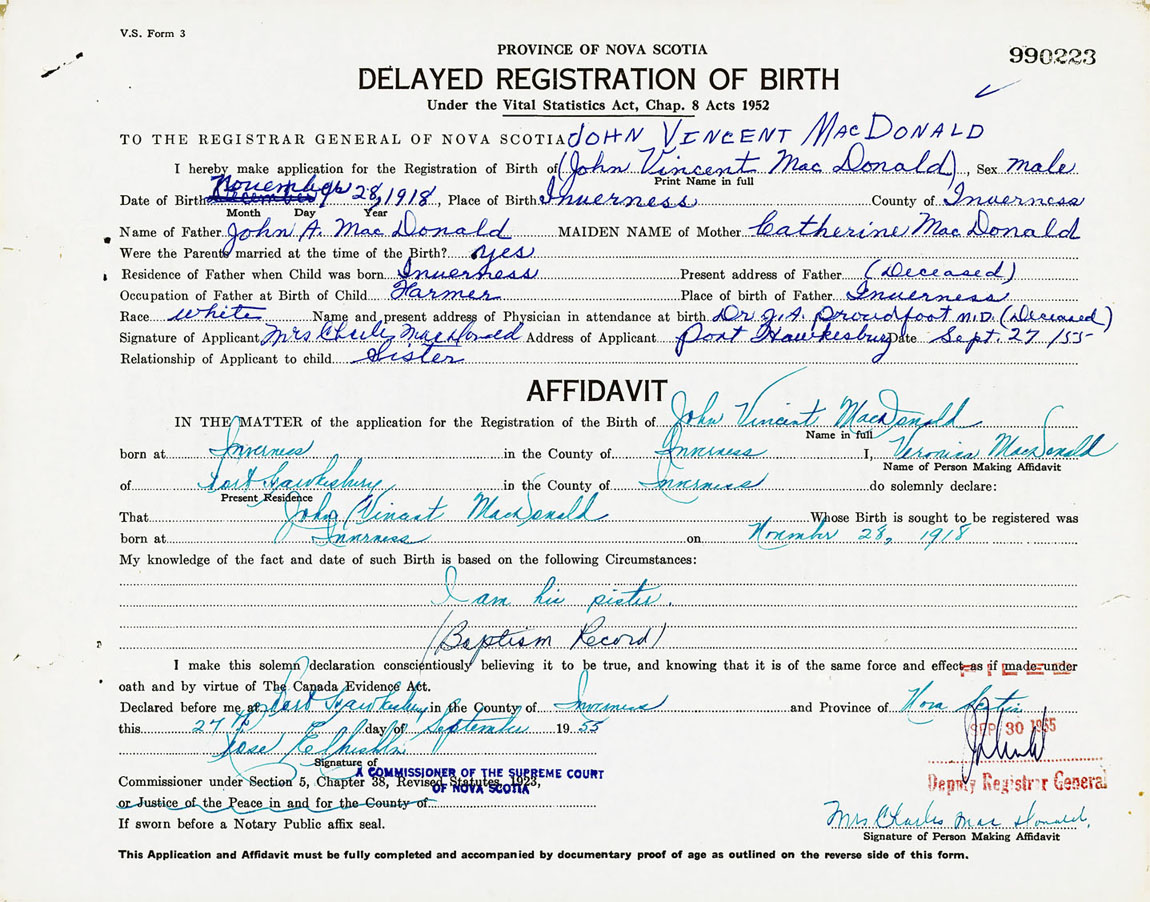 V.S. Form 3
PROVINCE OF NOVA SCOTIA
990223
DELAYED REGISTRATION OF BIRTH
Under the Vital Statistics Act, Chap. 8 Acts 1952
TO THE REGISTRAR GENERAL OF NOVA SCOTIA JOHN VINCENT MACDONALD
I hereby make application for the Registration of Birth of (John Vincent Mac Donald), Sex male
Print Name in full
November
Date of Birth December 28, 1918, Place of Birth Inverness County of Inverness
Month Day Year
Name of Father John A. Mac Donald MAIDEN NAME of Mother Catherine Mac Donald
Were the Parents married at the time of the Birth? yes
Residence of Father when Child was born Inverness Present address of Father (Deceased)
Occupation of Father at Birth of Child Farmer Place of birth of Father Inverness
Race white Name and present address of Physician in attendance at birth Dr J.A. Proudfoot M.D. (Deceased)
Signature of Applicant Mrs Mac Donald Address of Applicant Port Hawkesbury Date Sept. 27 /55
Relationship of Applicant to child Sister
AFFIDAVIT
IN THE MATTER of the application for the Registration of the Birth of John Vincent MacDonald
Name in full
born at Inverness in the County of Inverness I, Veronica MacDonald
Name of Person Making Affidavit
of Port Hawkesbury in the County of Inverness do solemnly declare:
Present Residence
That John Vincent MacDonald Whose Birth is sought to be registered was
born at Inverness on November 28, 1918
My knowledge of the fact and date of such Birth is based on the following Circumstances:
I am his sister.
(Baptism Record)
I make this solemn declaration conscientiously believing it to be true, and knowing that it is of the same force and effect as if made under
FILED
oath and by virtue of The Canada Evidence Act.
Declared before me at Port Hawkesbury in the County of Inverness and Province of Nova Scotia
this 27th day of September 1955
SEP 30 1955
Signature of
A COMMISSIONER OF THE SUPREME COURT
OF NOVA SCOTIA
Commissioner under Section 5, Chapter 38, Revised Statutes, 1923,
Deputy Registrar General
or Justice of the Peace in and for the County of
Mrs Charles Mac Donald,
If sworn before a Notary Public affix seal.
Signature of Person Making Affidavit
This Application and Affidavit must be fully completed and accompanied by documentary proof of age as outlined on the reverse side of this form.